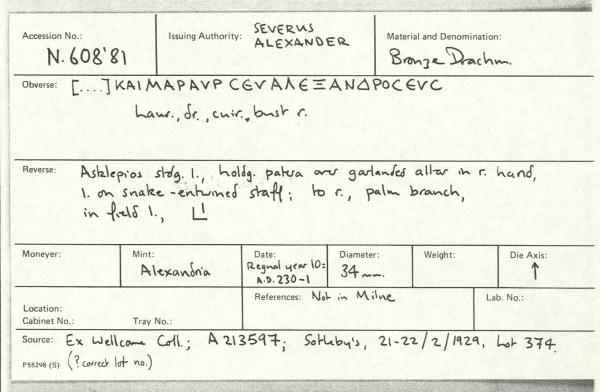 Accession No.: N.608'81
Issuing Authority: SEVERUS
ALEXANDER
Material and Denomination:
Bronze Drachm.
Obverse: [....] ΚΑΙ ΜΑΡ ΑVΡ CЄVΑΛЄΞΑΝΔΡΟC ЄVC
laur., dr., cuir., bust r.
Reverse: Asklepios stdg. l., holdg. patera over garlanded altar in r. hand,
l. on snake-entwined staff; to r., palm branch,
in field l., LI
Moneyer:
Mint:
Alexandria
Date:
Regnal year 10:
A.D. 230-1
Diameter:
34 mm.
Weight:
Die Axis:
↑
Location:
Cabinet No.: Tray No.:
References: Not in Milne
Lab. No.:
Source: Ex Wellcome Coll.; A213597; Sotheby's, 21-22/2/1929, Lot 374.
P55298 (S) (? correct lot no.)